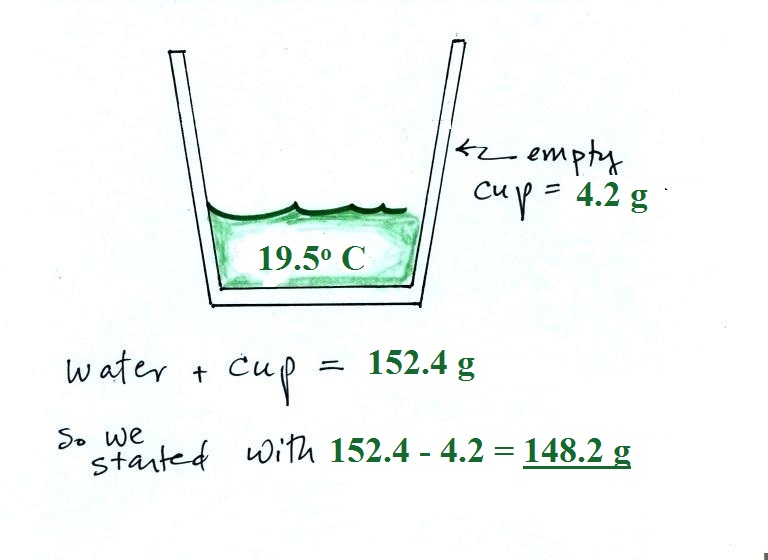 empty
cup = 4.2 g
19.5º C
water + cup = 152.4 g
So we
started with 152.4 - 4.2 = 148.2 g